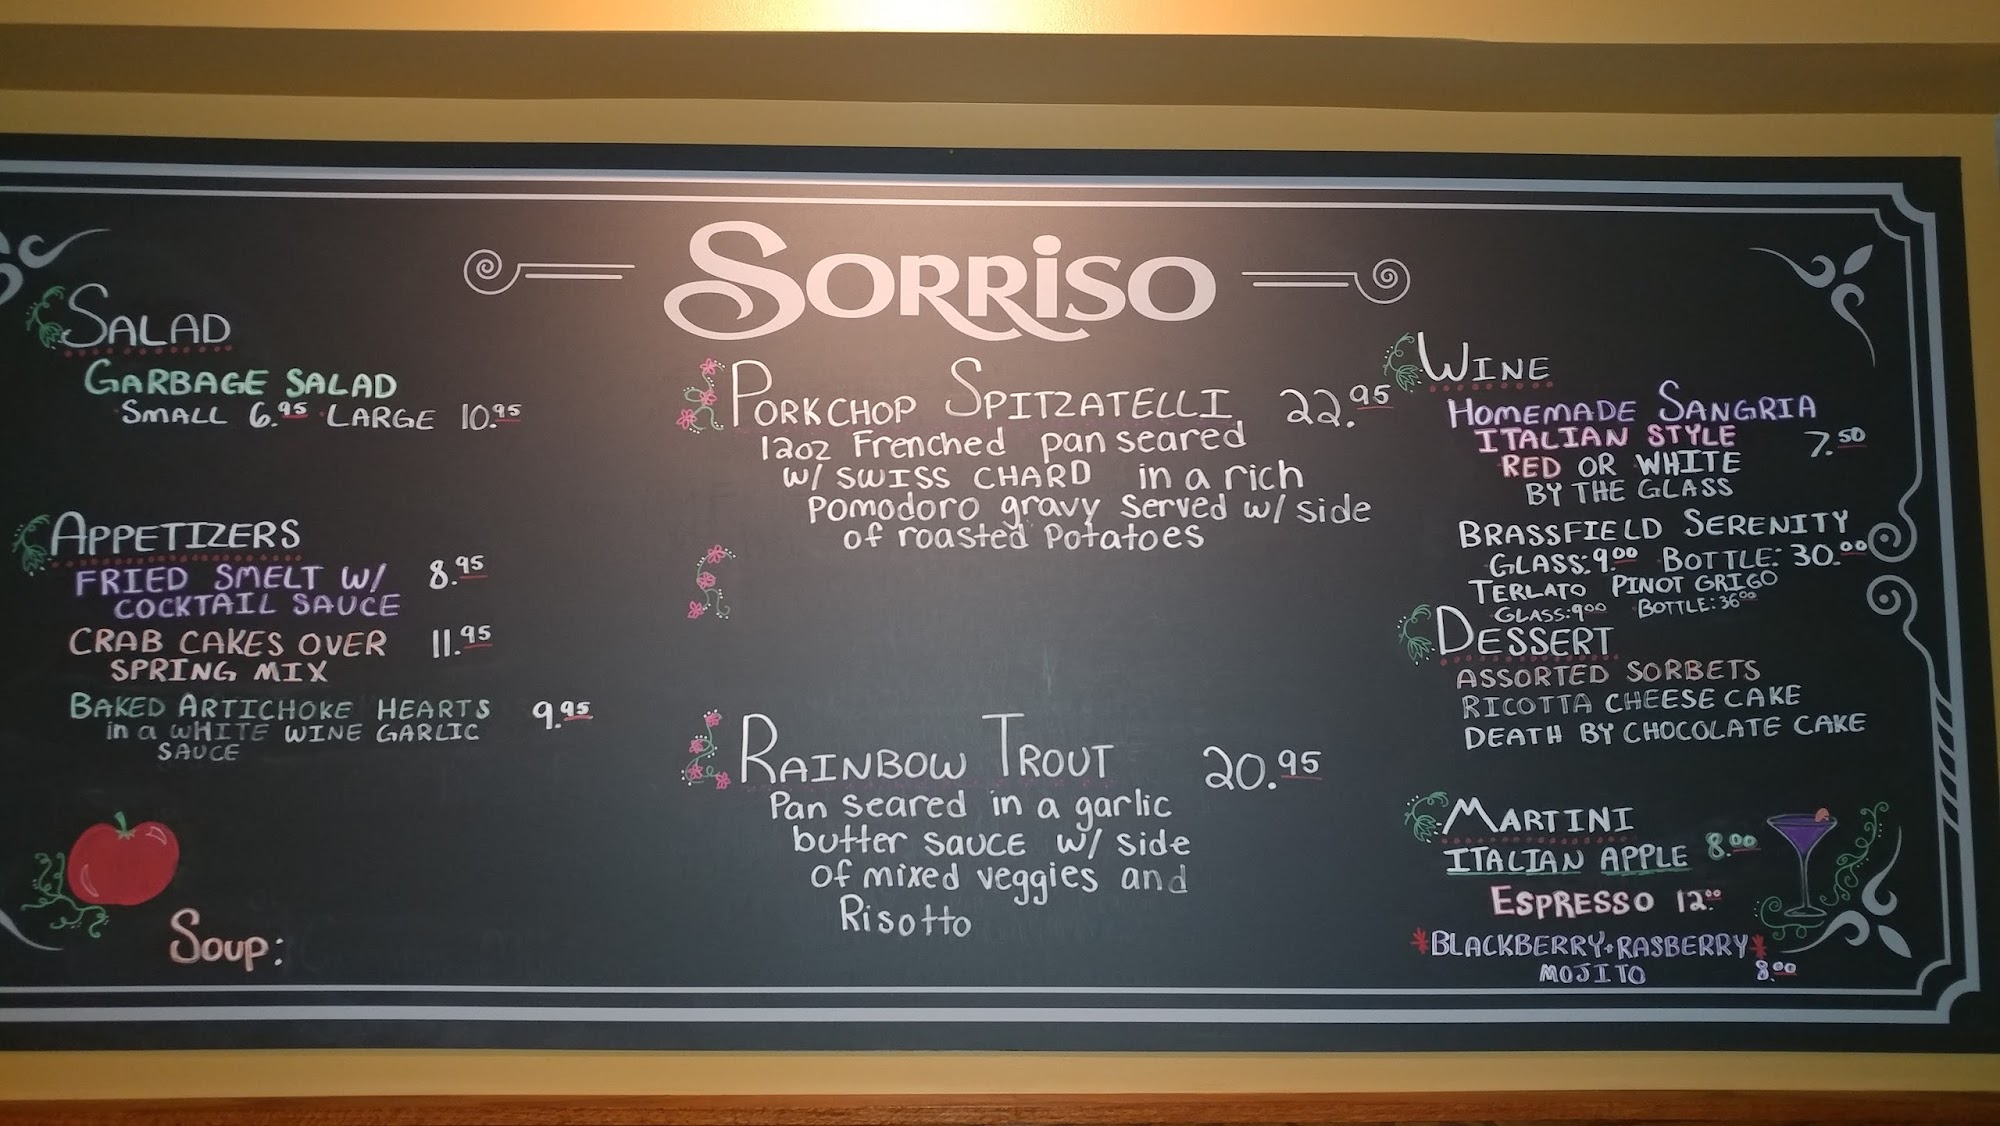 SORRISO
SALAD
GARBAGE SALAD
SMALL 6.95 LARGE 10.95
APPETIZERS
FRIED SMELT W/ 8.95
COCKTAIL SAUCE
CRAB CAKES OVER 11.95
SPRING MIX
BAKED ARTICHOKE HEARTS 9.95
in a WHITE WINE GARLIC
SAUCE
SOUP:
PORKCHOP SPITZATELLI 22.95
12oz Frenched pan seared
w/ SWISS CHARD in a rich
Pomodoro gravy Served w/ side
of roasted Potatoes
RAINBOW TROUT 20.95
Pan Seared in a garlic
butter SAUCE w/ side
of mixed veggies and
Risotto
WINE
HOMEMADE SANGRIA
ITALIAN STYLE 7.50
RED OR WHITE
BY THE GLASS
BRASSFIELD SERENITY
GLASS:9.00 BOTTLE: 30.00
TERLATO PINOT GRIGO
GLASS:9.00 BOTTLE:36.00
DESSERT
ASSORTED SORBETS
RICOTTA CHEESE CAKE
DEATH BY CHOCOLATE CAKE
MARTINI
ITALIAN APPLE 8.00
ESPRESSO 12.00
*BLACKBERRY+RASBERRY*
MOJITO 8.00